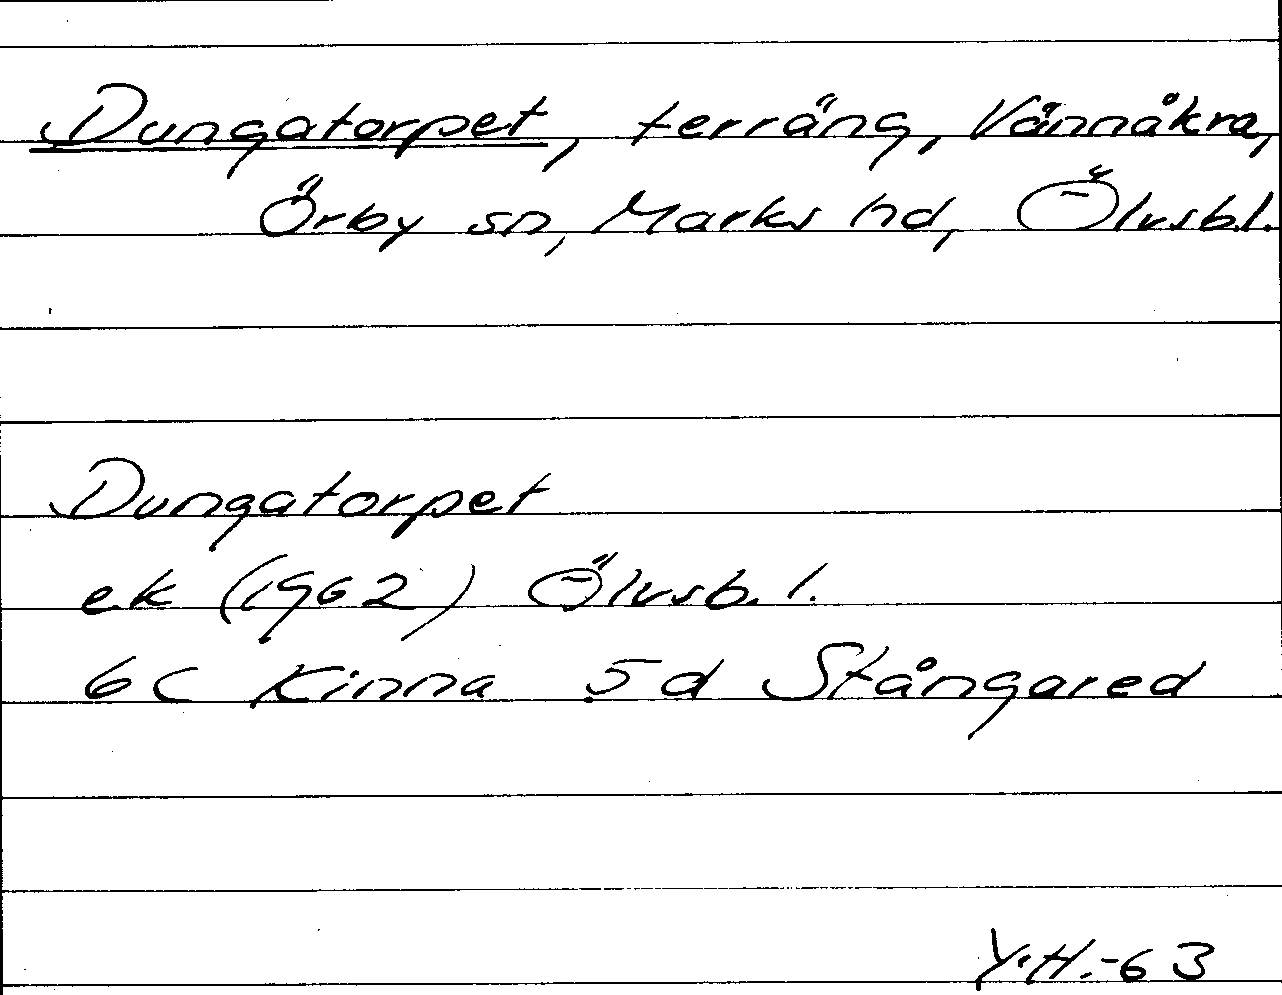 Dungatorpet, terräng, Vännåkra,
Örby sn, Marks hd, Älvsb.l.
Dungatorpet
ek (1962) Älvsb. l.
6C Kinna 5d Stångared
Y.H.-63